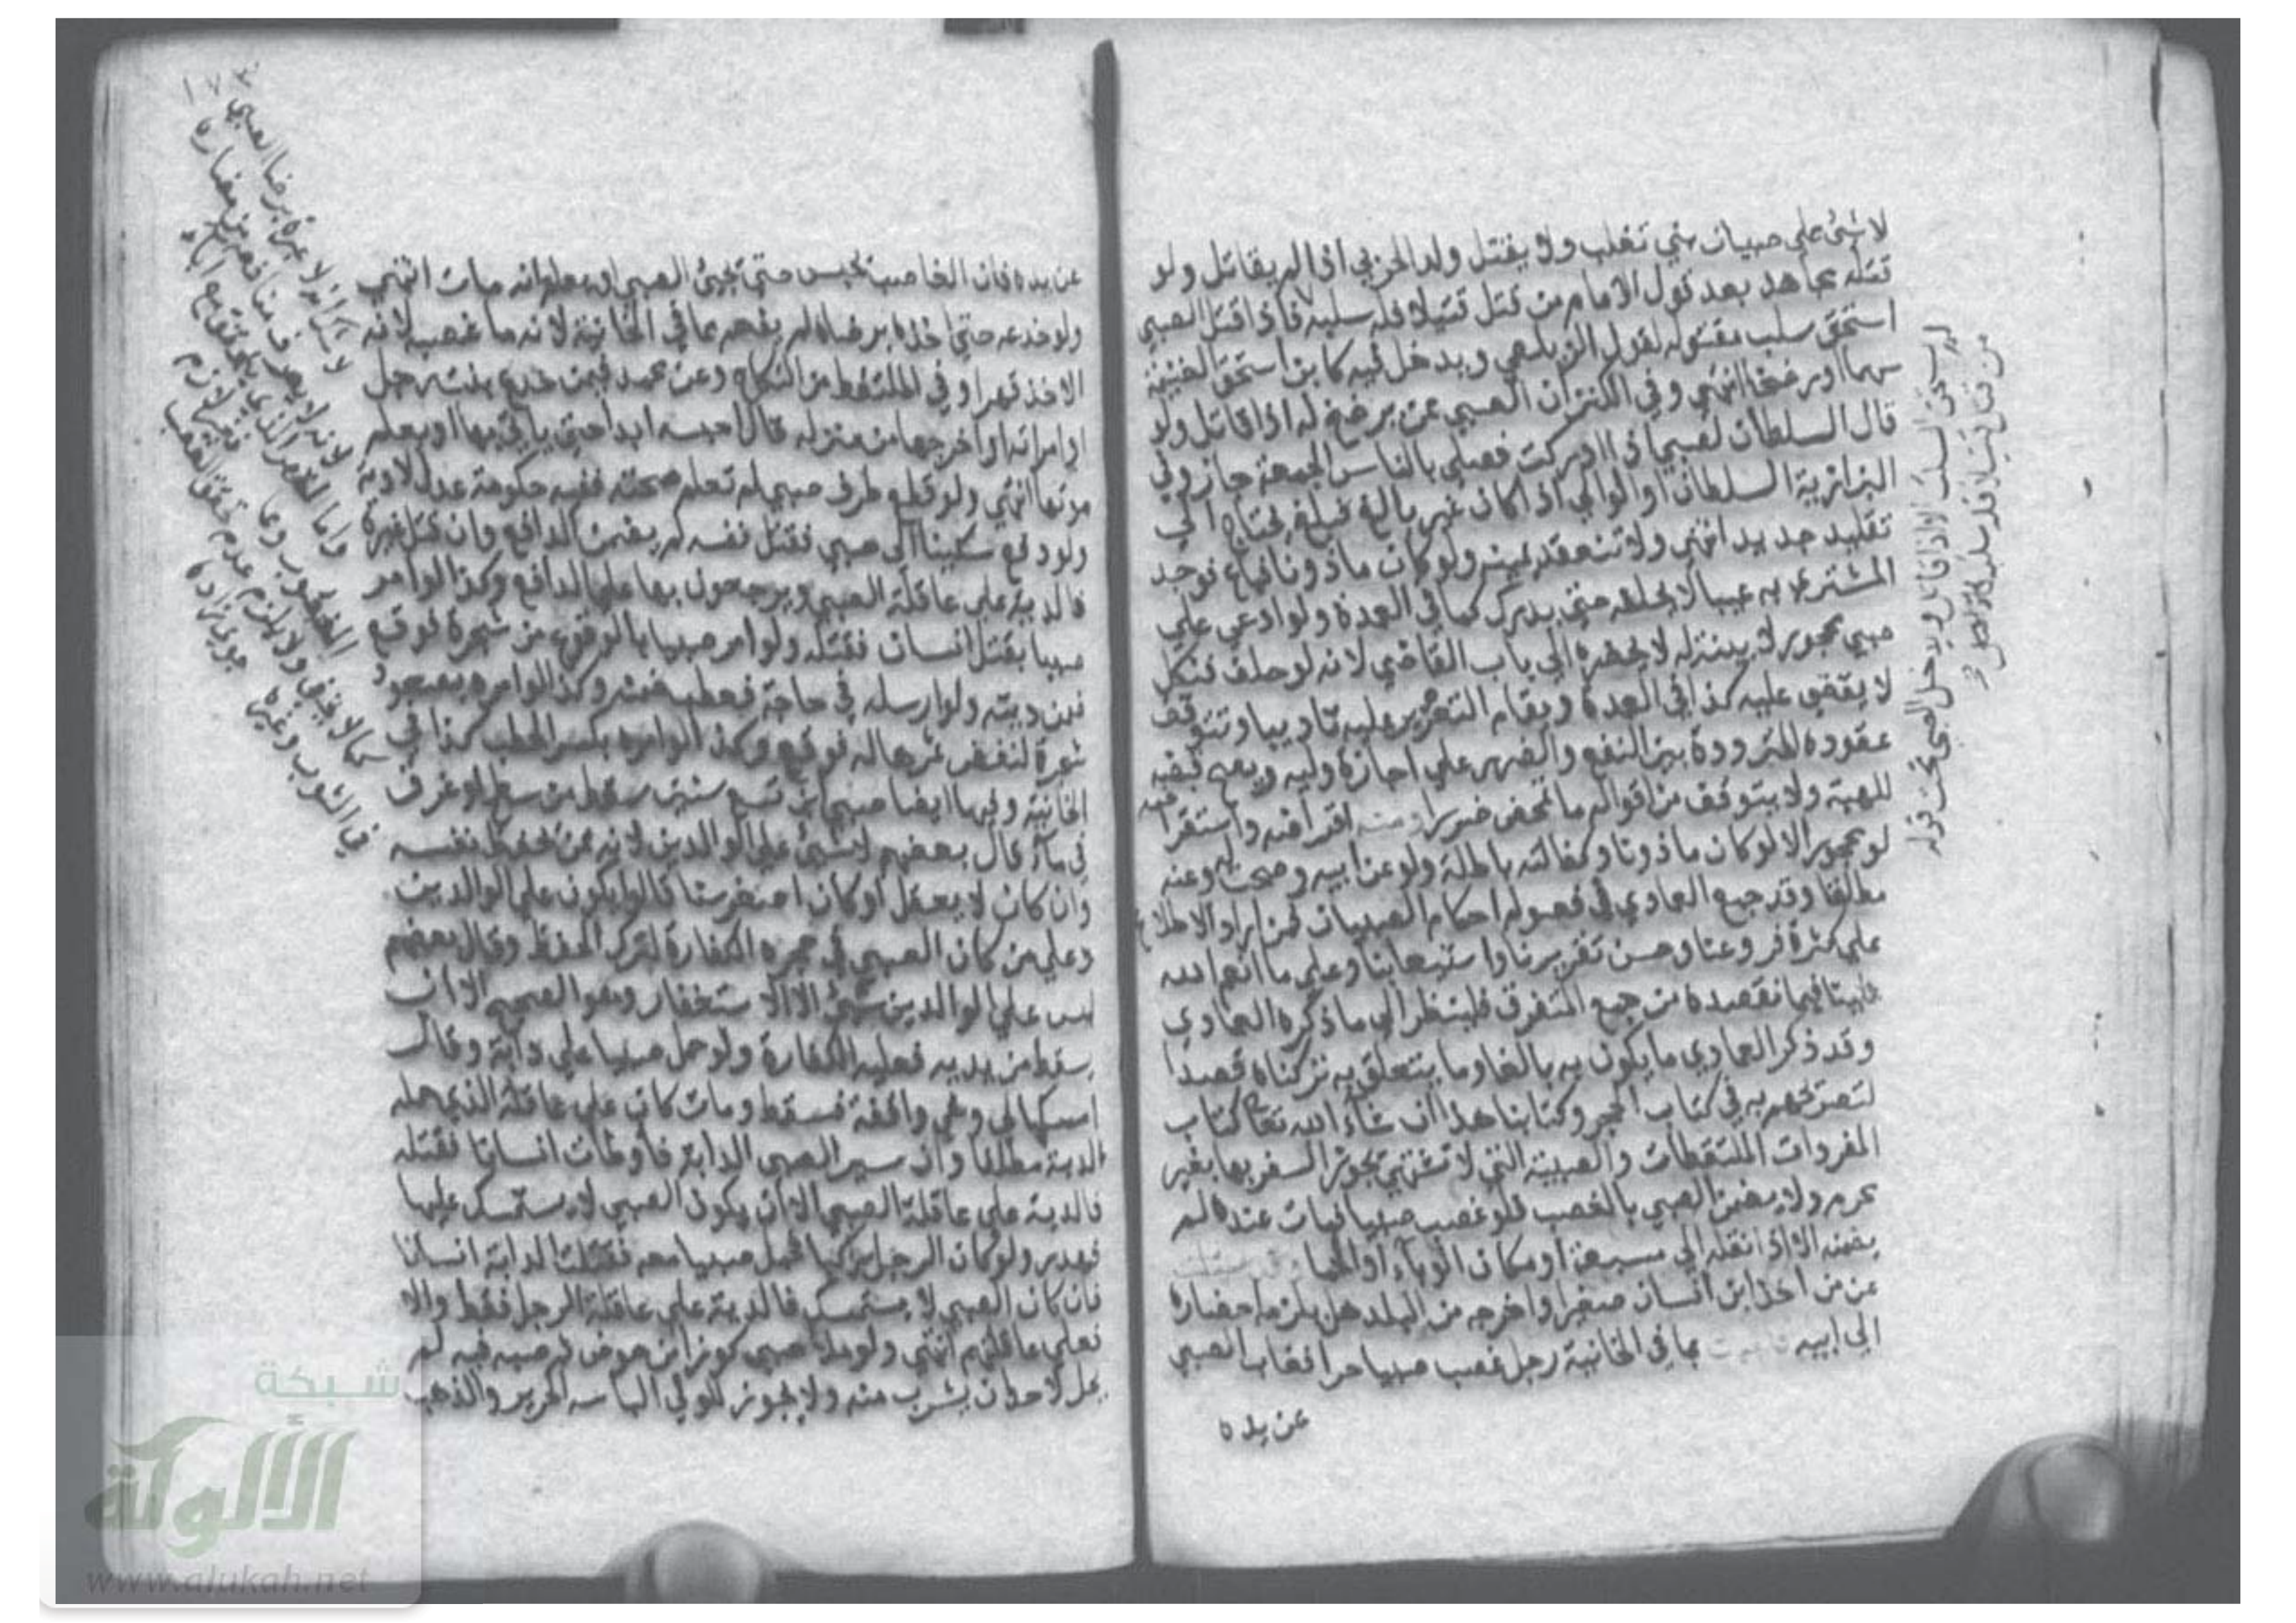 لا شئ على صبيان بني تغلب ولا يقتل ولد الحربي اذا لم يقاتل ولو
قتله مجاهد بعد قول الامام من قتل قتيلا فله سلبه فاذا قتل الصبي
استحق سلب مقتوله لقول الزيلعي ويدخل فيه كل من استحق الغنيمة
سهما او رضخا انتهى وفي الكنز ان الصبي ممن يرضخ له اذا قاتل ولو
قال السلطان لصبي اذا ادركت فصلي بالناس الجمعة جاز وفي
البزازية السلطان او الوالي اذا كان غير بالغ فبلغ يحتاج الى
تقليد جديد انتهى ولا تنعقد يمينه ولو كان ماذونا فباع فوجد
المشتري به عيبا لا يحلفه حتى يدرك كما في العمدة ولو ادعي على
صبي محجور لا بينة له لا يحضره الى باب القاضي لانه لو حلف فنكل
لا يقضى عليه كذا في العمدة ويقام التعزير عليه تاديبا وتتوقف
عقوده المترددة بين النفع والضرر على اجازة وليه ويصح قبضه
للهبة ولا يتوقف من اقواله ما تمحض ضررا ومنه اقراضه واستقراضه
لو محجورا لا لو كان ماذونا وكفالته باطلة ولو عن ابيه وصحت له وعنه
مطلقا وقد جمع العمادي في فصوله احكام الصبيان فمن اراد الاطلاع
على كثرة فروعنا وحسن تقريرنا واستيعابنا وعلى ما انعم الله
علينا فيما نقصده من جمع المتفرق فلينظر الى ما ذكره العمادي
وقد ذكر العمادي ما يكون به بالغا وما يتعلق به تركناه قصدا
لتصريحهم به في كتاب الحجر وكتابنا هذا ان شاء الله تعالى كتاب
المفردات الملتقطات والصبية التي لا تشتهى يجوز السفر بها بغير
محرم ولا يضمن الصبي بالغصب فلو غصب صبيا فمات عنده لم
يضمنه الا اذا نقله الى مسبعة او مكان الوباء او الحمى
عن من اخذ ابن انسان صغيرا واخرجه من البلد هل يلزمه احضاره
الى ابيه بما في الخانية رجل غصب صبيا حرا فغاب الصبي
عن يده
من قتل قتيلا فله سلبه
عن يده فان الغاصب يحبس حتى يجئ الصبي او يعلم انه مات انتهى
ولو خدعه حتى اخذه برضاه لم يفهم مما في الخانية لانه ما غصبه لانه
الاخذ قهرا وفي الملتقط من النكاح وعن محمد فيمن خدع بنت رجل
او امراته او اخرجها من منزله قال احبسه ابدا حتى ياتي بها او يعلم
موتها انتهى ولو قطع طرف صبي لم تعلم صحته ففيه حكومة عدل لا دية
ولو دفع سكينا الى صبي فقتل نفسه لم يضمن الدافع وان قتل غيره
فالدية على عاقلة الصبي ويرجعون بها على الدافع وكذا لو امر
صبيا بقتل انسان فقتله ولو امر صبيا بالوقوع من شجرة فوقع
ضمن ديته ولو ارسله في حاجة فعطب ضمنه وكذا لو امره بصعود
شجرة لنفض ثمرها له فوقع وكذا لو امره بكسر الحطب كذا في
الخانية وفيها ايضا صبي ابن تسع سنين سقط من سطح او غرق
في ماء قال بعضهم لا شئ على الوالدين لانه ممن يحفظ نفسه
وان كان لا يعقل او كان اصغر سنا قالوا يكون على الوالدين
وعلى من كان الصبي في حجره الكفارة لترك الحفظ وقال بعضهم
ليس على الوالدين شئ الا الاستغفار وهو الصحيح الا ان
يسقط من يديه فعليه الكفارة ولو حمل صبيا على دابة وقال
امسكها لي وهي واقفة فسقط ومات كان على عاقلة الذي حمله
الدية مطلقا وان سير الصبي الدابة فاوطات انسانا فقتله
فالدية على عاقلة الصبي الا ان يكون الصبي لا يستمسك عليها
فهدر ولو كان الرجل راكبا فحمل صبيا معه فقتلت الدابة انسانا
فان كان الصبي لا يستمسك فالدية على عاقلة الرجل فقط والا
فعلى عاقلتهم انتهى ولو ملأ صبي كوزا من حوض ثم صبه فيه لم
يحل لاحد ان يشرب منه ولا يجوز للولي الباسه الحرير والذهب
١٧٣
شبكة
الألوكة
www.alukah.net